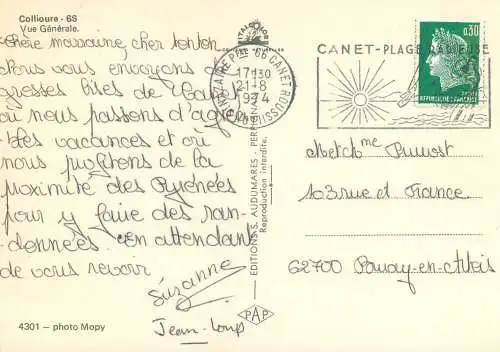 Collioure - 66
Vue Générale.
Chère marraine, cher tonton
Nous vous envoyons de
grosses bises de
où nous passons d'agréa-
bles vacances et où
nous profitons de la
proximité des Pyrénées
pour y faire des ran-
données. En attendant
de vous revoir
Suzanne
Jean-Loup
4301 — photo Mopy
EDITIONS S. AUDUMARES - PERPIGNAN
Reproduction interdite.
PAP
66 CANET ROUSSILLON
17H30
21-8
1974
CANET-PLAGE RADIEUSE
0,30
REPUBLIQUE FRANCAISE
M et Mme Pruvost
103 rue
62700 Bruay-en-Artois